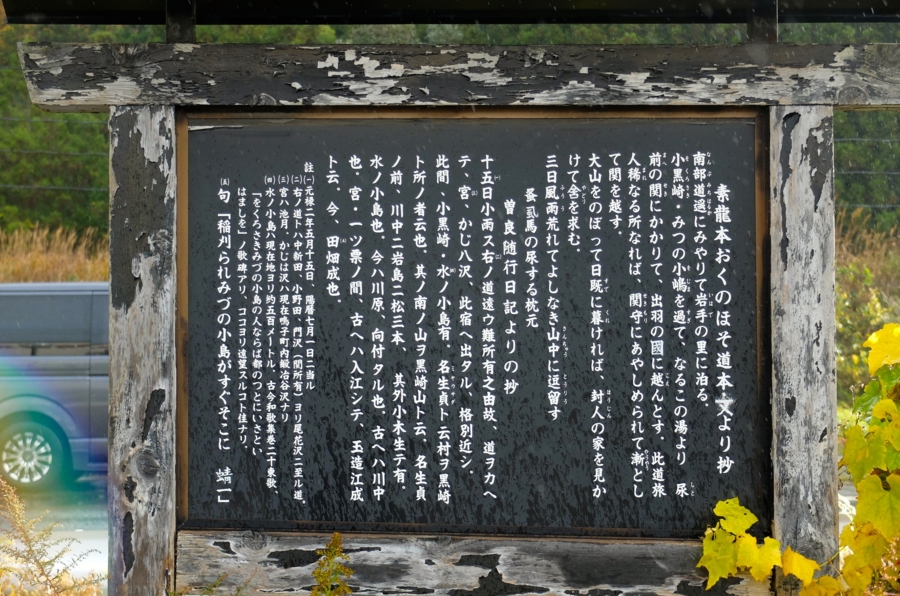 素龍本おくのほそ道本文より抄
南部道遥にみやりて岩手の里に泊る。
小黒崎・みつの小嶋を過て、なるこの湯より 尿
前の関にかかりて、出羽の國に越んとす。此道旅
人稀なる所なれば、関守にあやしめられて漸とし
て関を越す。
大山をのぼって日既に暮ければ、封人の家を見か
けて舎を求む。
三日風雨荒れてよしなき山中に逗留す
蚤虱馬の尿する枕元
曽良随行日記よりの抄
十五日小雨ス右ノ道遠ク難所有之由故、道ヲカヘ
テ、宮、かじ八沢、此宿へ出タル、格別近シ。
此間、小黒崎・水ノ小島有。名生貞ト云村ヲ黒崎
ト所ノ者云也。其ノ南ノ山ヲ黒崎山ト云、名生貞
ノ前、川中ニ岩島ニ松三本、其外小木生テ有。
水ノ小島也。今ハ川原、向付タル也。古ヘハ川中
也。宮・一ツ栗ノ間、古ヘハ入江シテ、玉造江成
ト云、今、田畑成也。
註 (一)元禄二年五月十五日、陽暦七月一日ニ当ル
(二)右ノ道トハ中新田、小野田、門沢(関所有)ヨリ尾花沢ニ至ル道。
(三)宮ハ池月、かじは沢ハ現在鳴子町内鍛冶谷沢ナリ
(四)水ノ小島ハ現在地ヨリ約五百メートル、古今和歌集巻二十東歌、
「をぐろさきみづの小島の人ならば都のつとにいさとい
はましを」ノ歌碑アリ、ココヨリ遠望スルコト佳ナリ、
(五)句「稲刈られみづの小島がすぐそこに 蜻一」